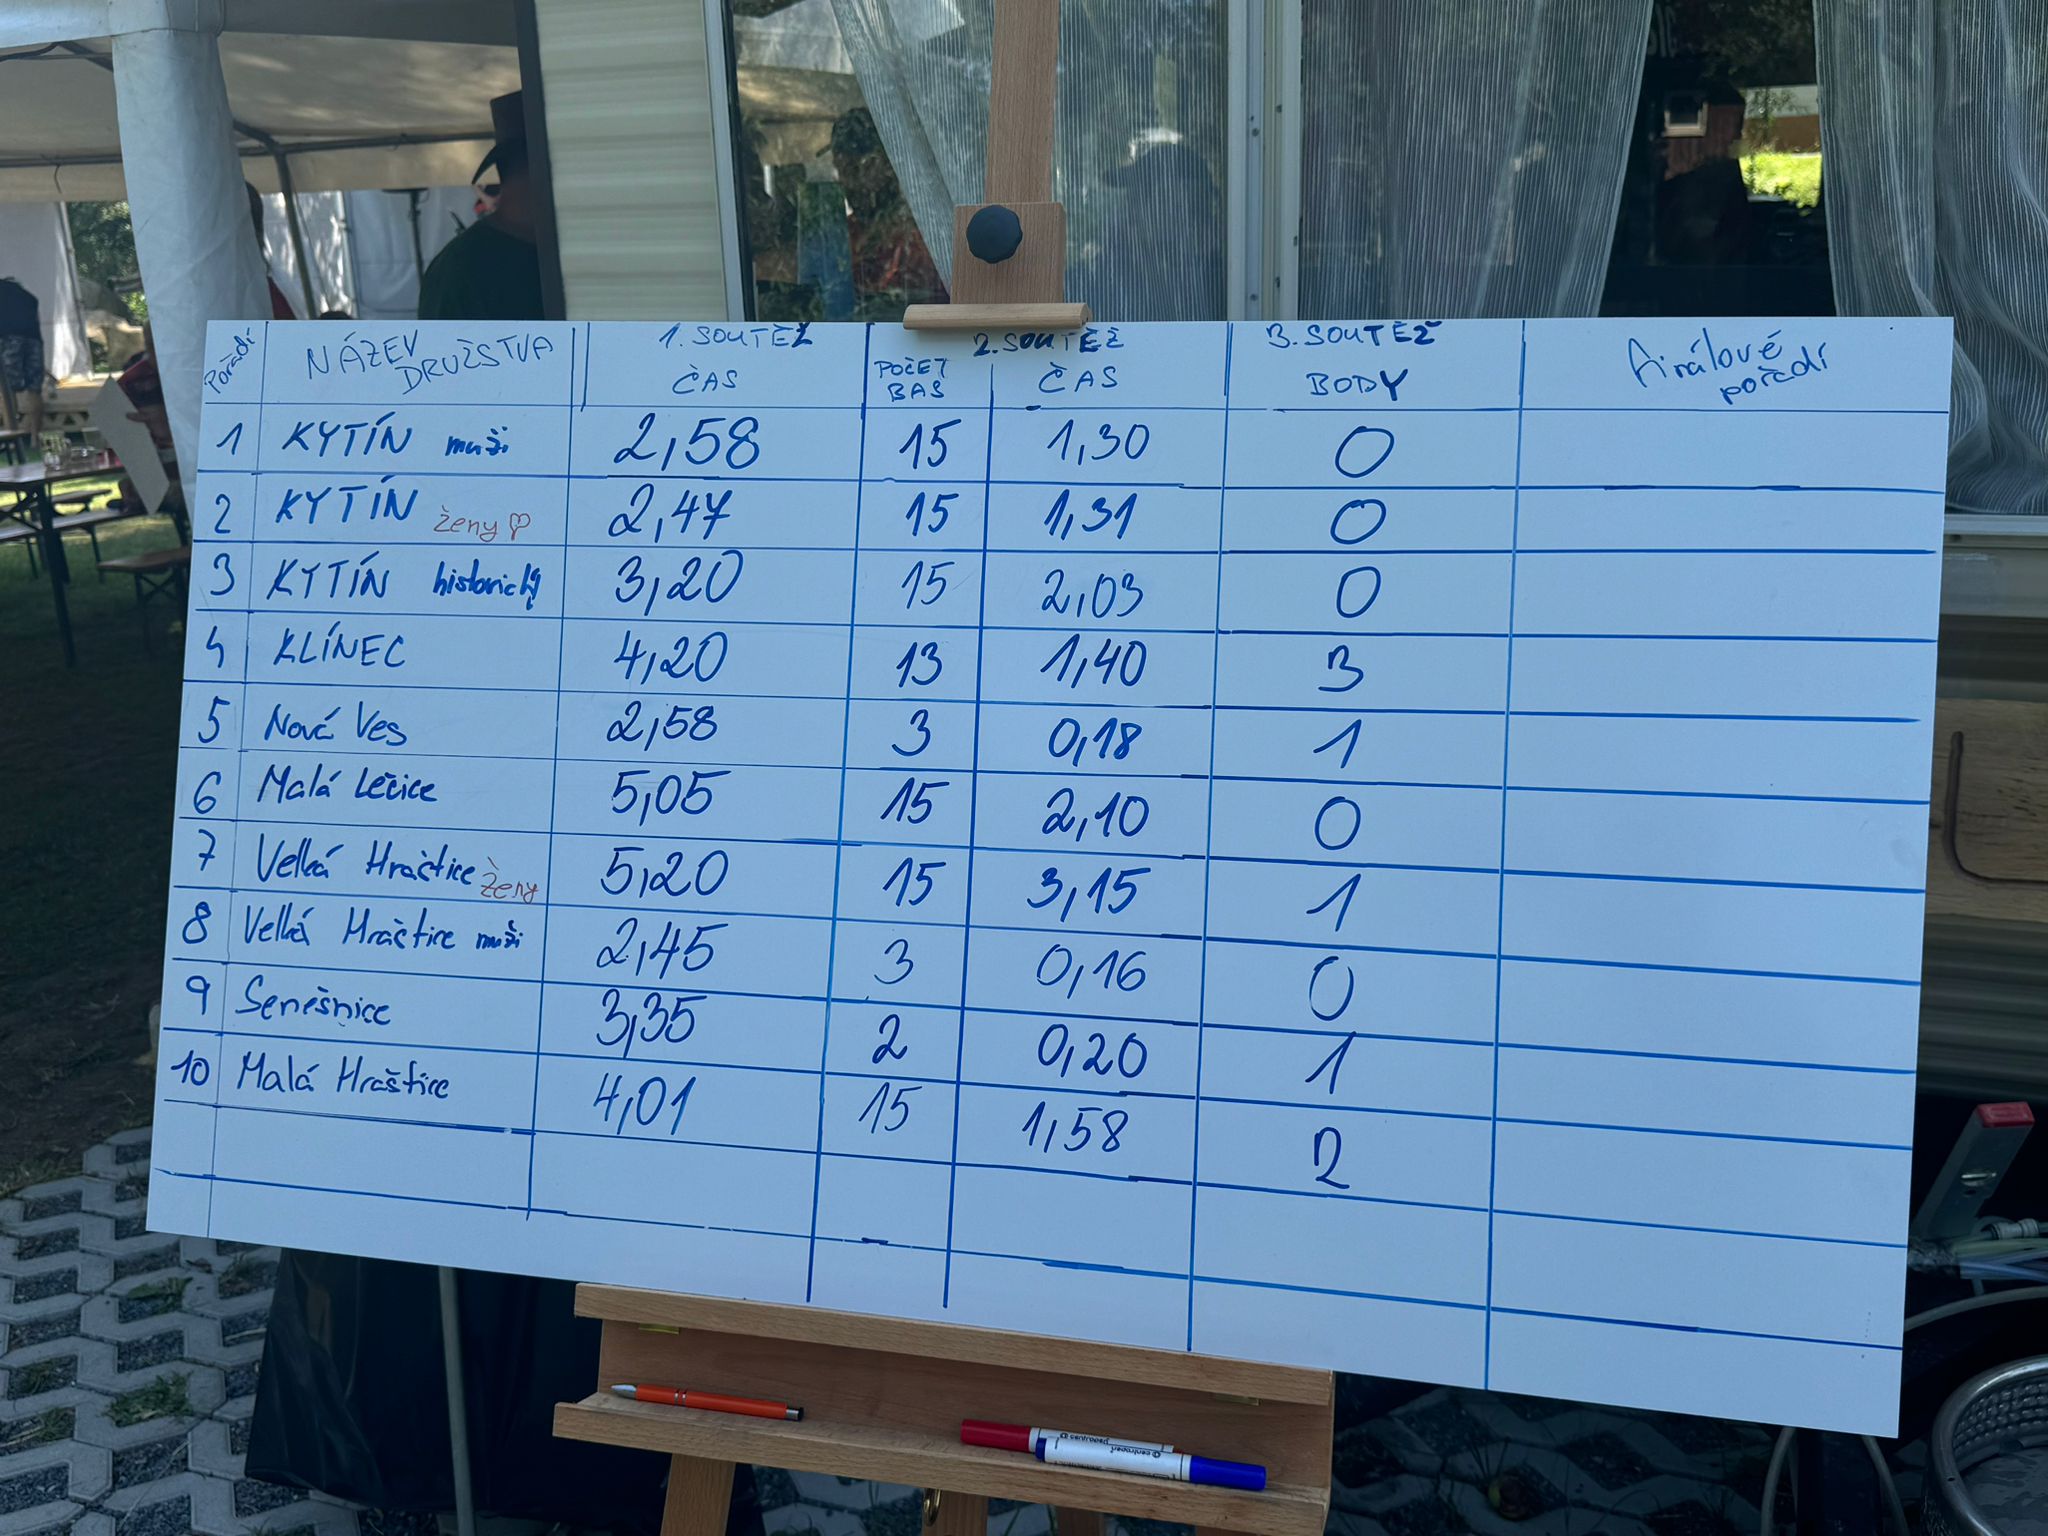 Pořadí NÁZEV DRUŽSTVA 1. SOUTĚŽ ČAS POČET BAS 2. SOUTĚŽ ČAS 3. SOUTĚŽ BODY Finálové pořadí
1 KYTÍN muži 2,58 15 1,30 0
2 KYTÍN ženy 2,47 15 1,31 0
3 KYTÍN historický 3,20 15 2,03 0
4 KLÍNEC 4,20 13 1,40 3
5 Nová Ves 2,58 3 0,18 1
6 Malá Lečice 5,05 15 2,10 0
7 Velká Hraštice ženy 5,20 15 3,15 1
8 Velká Hraštice muži 2,45 3 0,16 0
9 Senešnice 3,35 2 0,20 1
10 Malá Hraštice 4,01 15 1,58 2
centropen